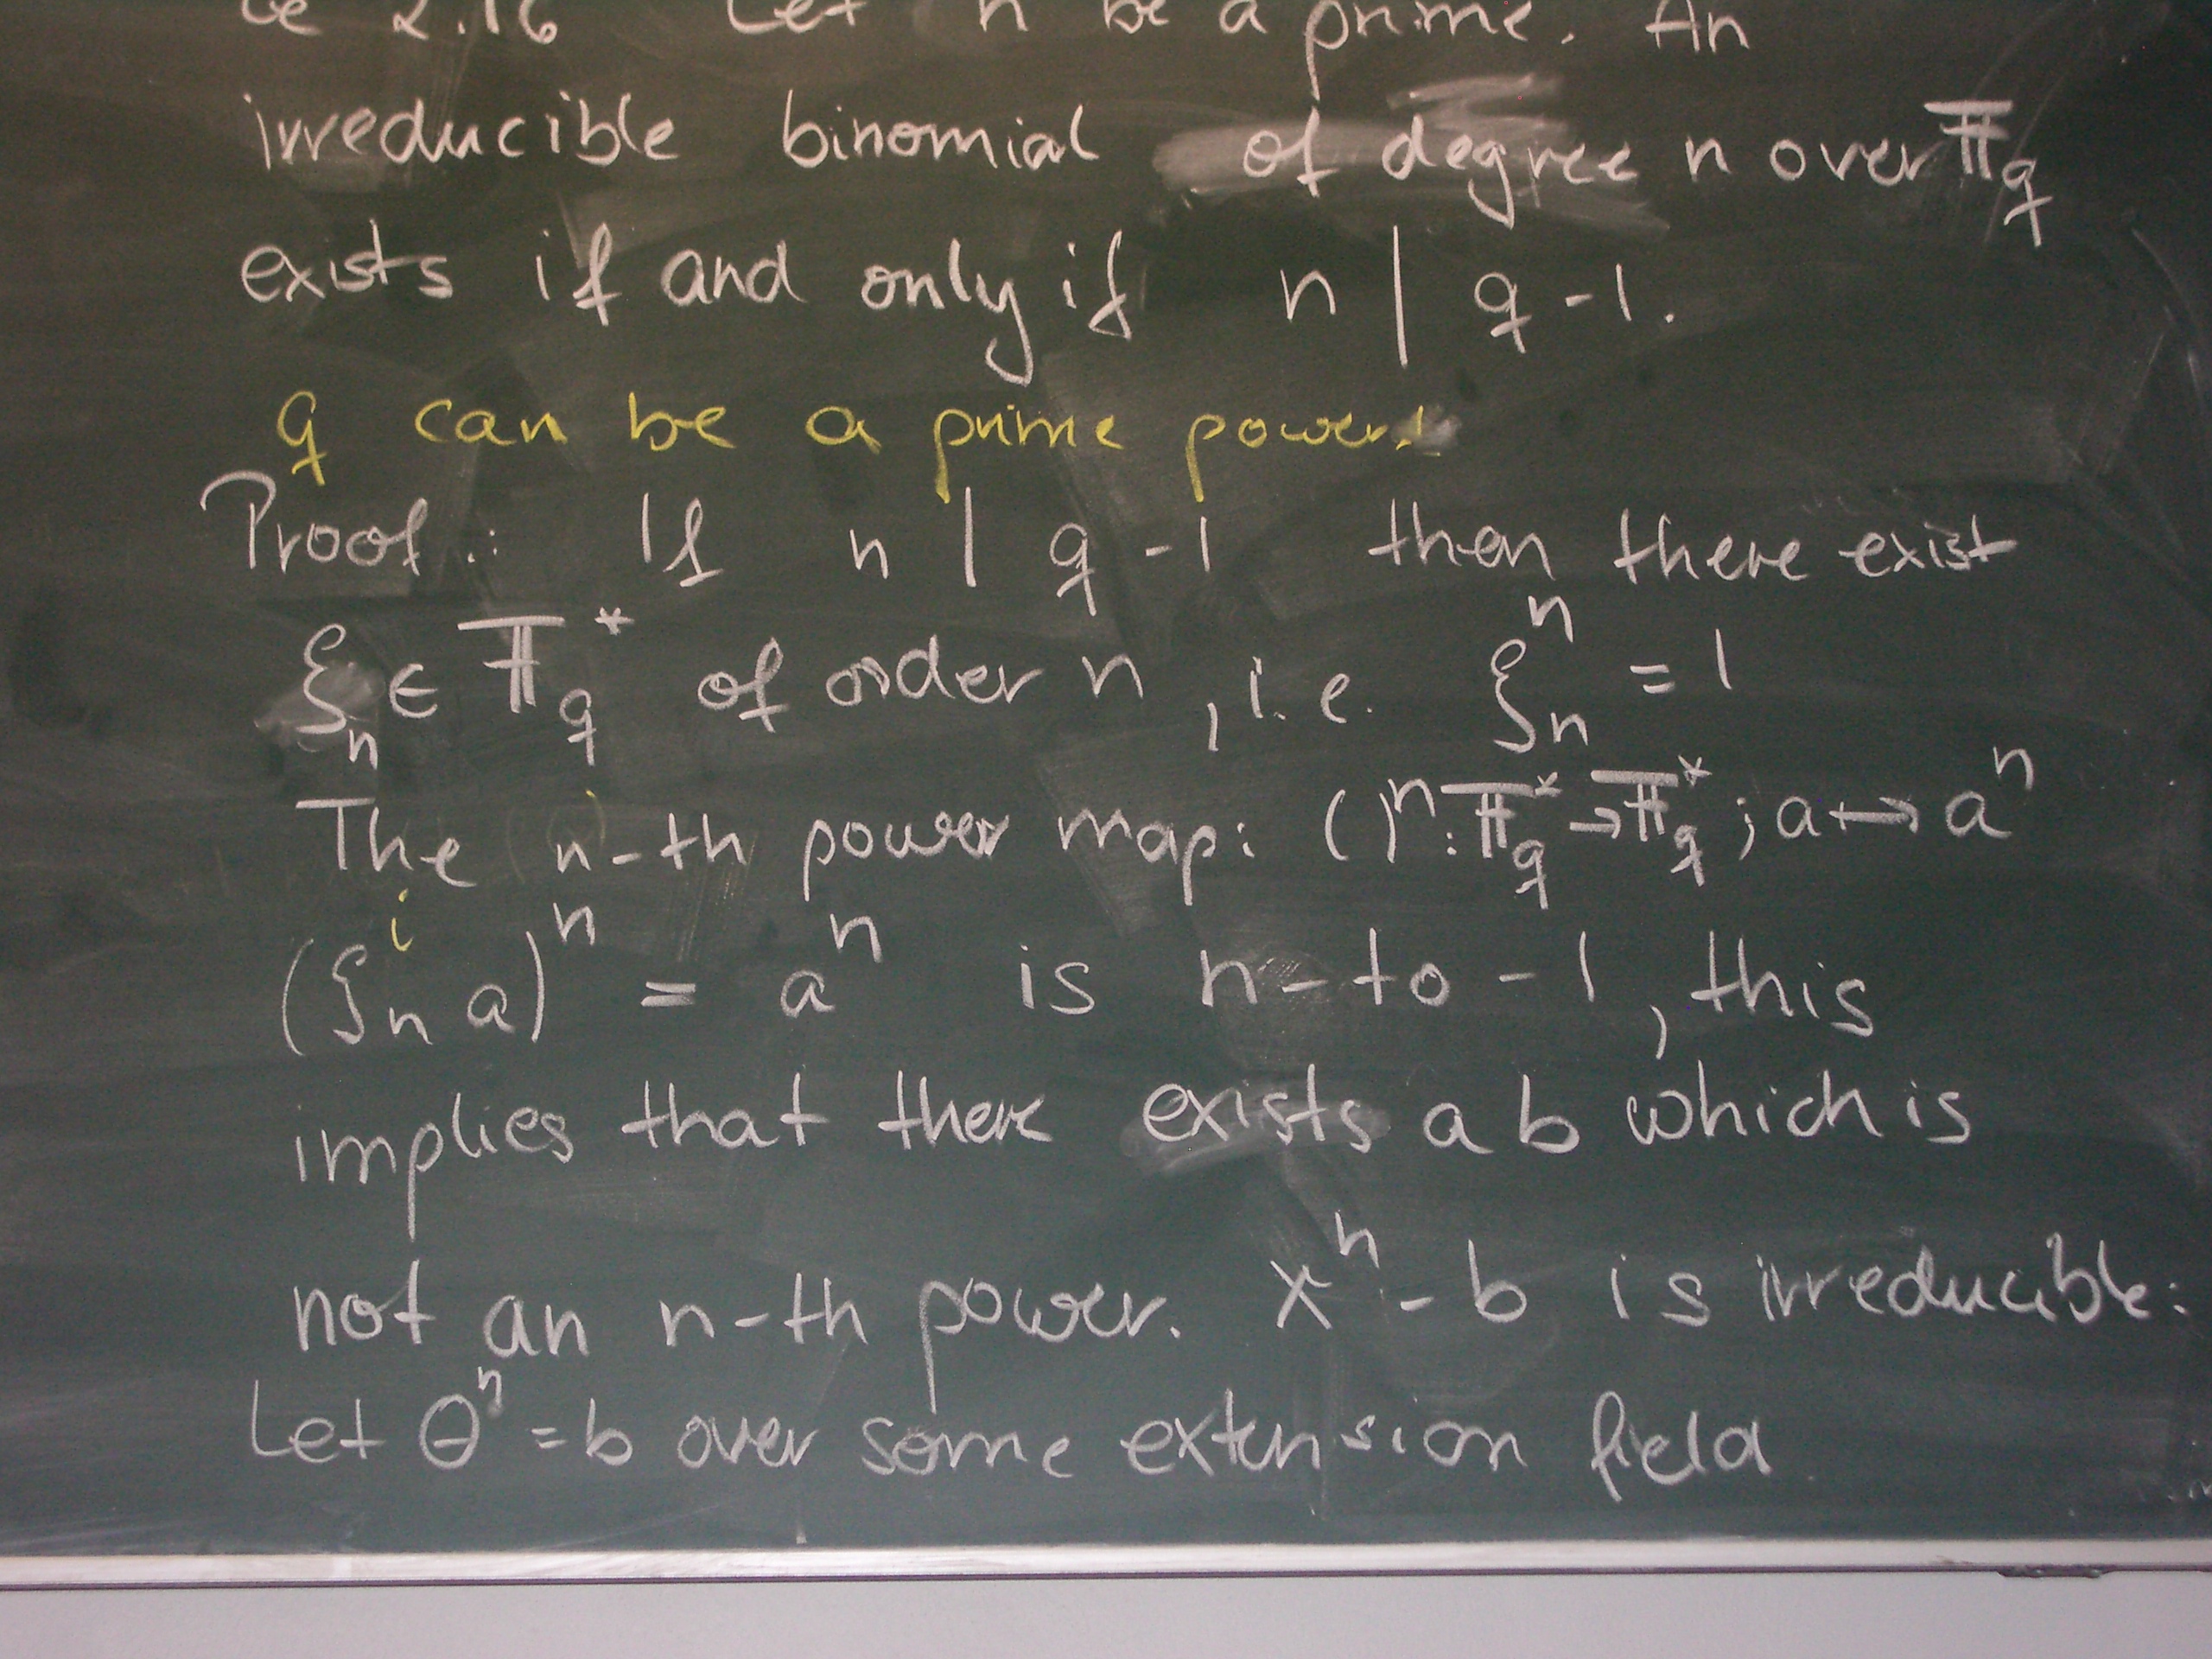 2.16 Let n be a prime. An
irreducible binomial of degree n over 𝔽_q
exists if and only if n | q-1.
q can be a prime power!
Proof: If n | q-1 then there exist
ξ_n ∈ 𝔽_q^* of order n, i.e. ξ_n^n = 1
The n-th power map: ( )^n: 𝔽_q^* → 𝔽_q^*; a ↦ a^n
(ξ_n^i a)^n = a^n is n-to-1, this
implies that there exists a b which is
not an n-th power. x^n - b is irreducible:
Let θ^n = b over some extension field